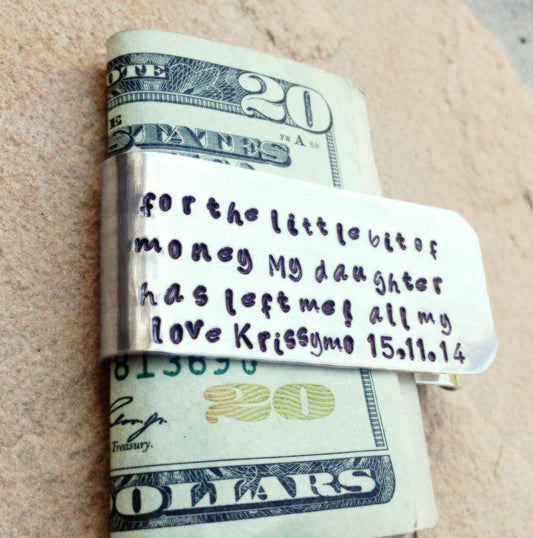 OTE
20
FW A 50
STATES
for the little bit of
money My daughter
has left me! all my
love Krissymo 15.11.14
813690
20
Treasury.
OLLARS